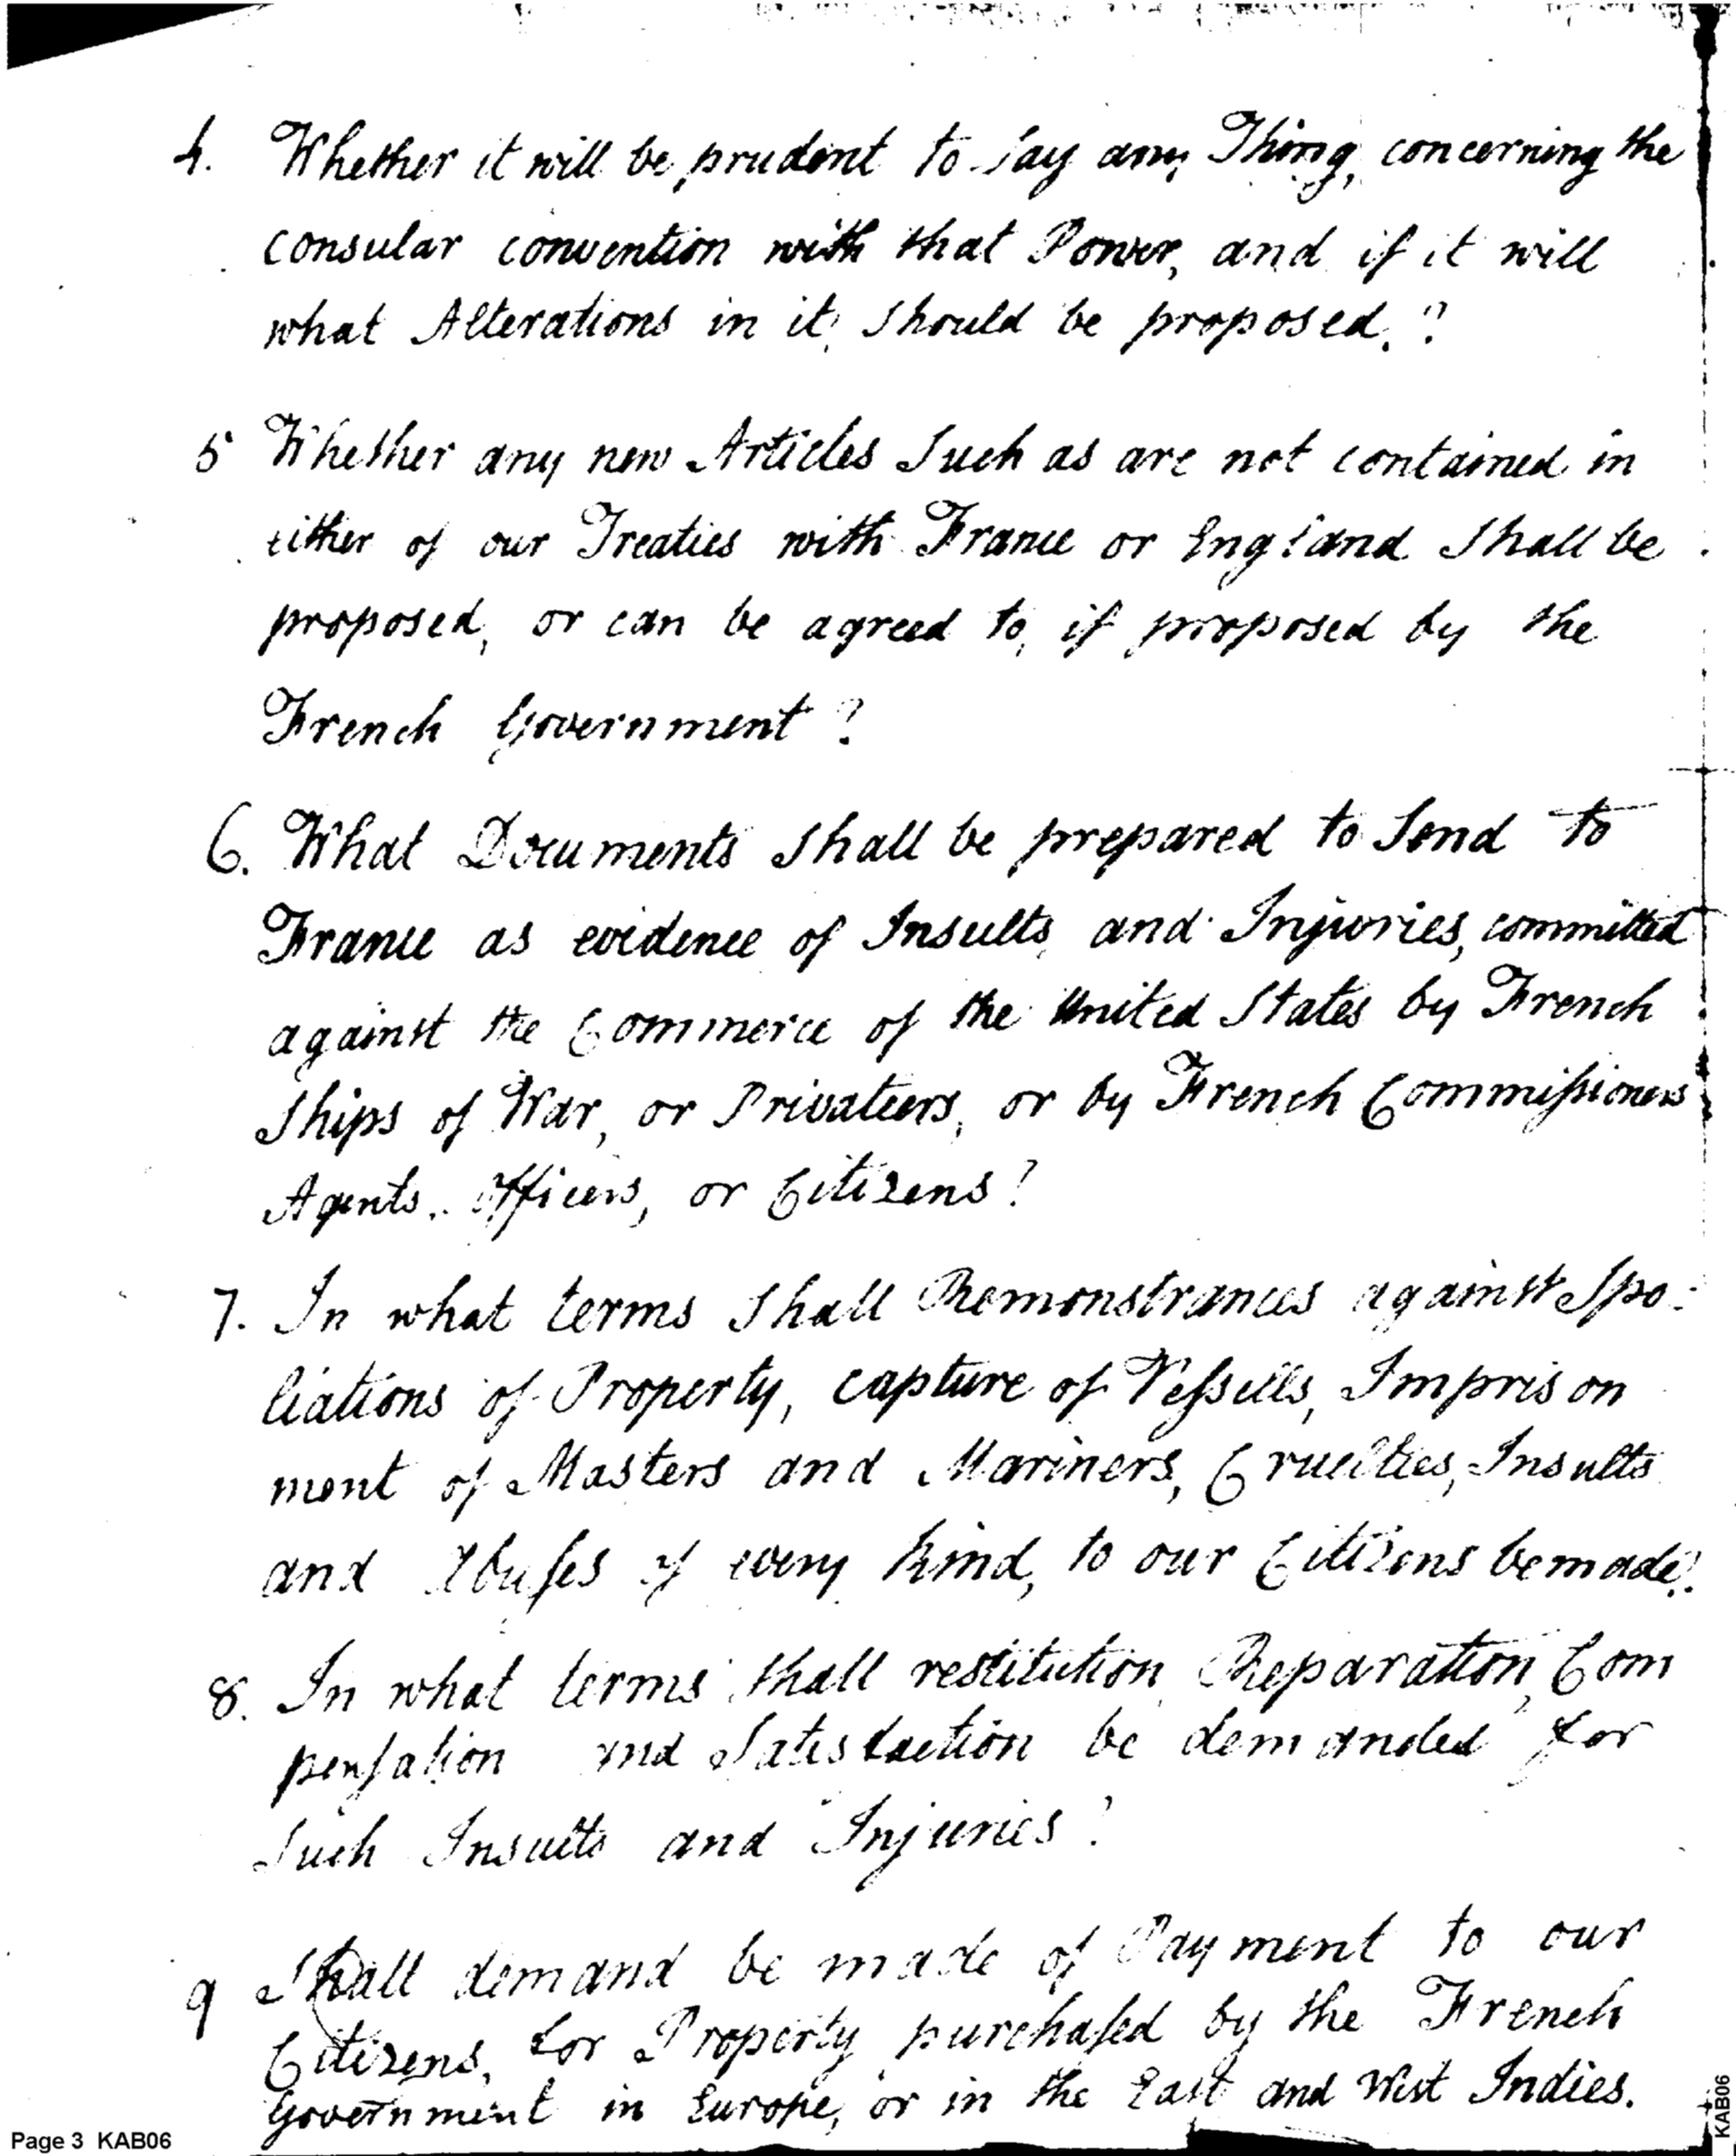 4. Whether it will be prudent to say any Thing, concerning the
consular convention with that Power, and if it will
what Alterations in it, should be proposed.?
5 Whether any new Articles such as are not contained in
either of our Treaties with France or England shall be
proposed, or can be agreed to, if proposed by the
French Government?
6. What Documents shall be prepared to send to
France as evidence of Insults, and Injuries, committed
against the Commerce of the United States by French
Ships of War, or Privateers, or by French Commiſsioners
Agents.. Officers, or Citizens?
7. In what terms shall Remonstrances against Spo-
liations of Property, capture of Veſsells, Imprison
ment of Masters and Mariners, Cruelties, Insults
and Abuſes of every kind, to our Citizens be made?
8. In what terms shall restitution, Reparation, Com
penſation and Satisfaction be demanded for
such Insults and Injuries?
9 Shall demand be made of Payment to our
Citizens, for Property purchaſed by the French
Government in Europe, or in the East and West Indies.
Page 3 KAB06
KAB06